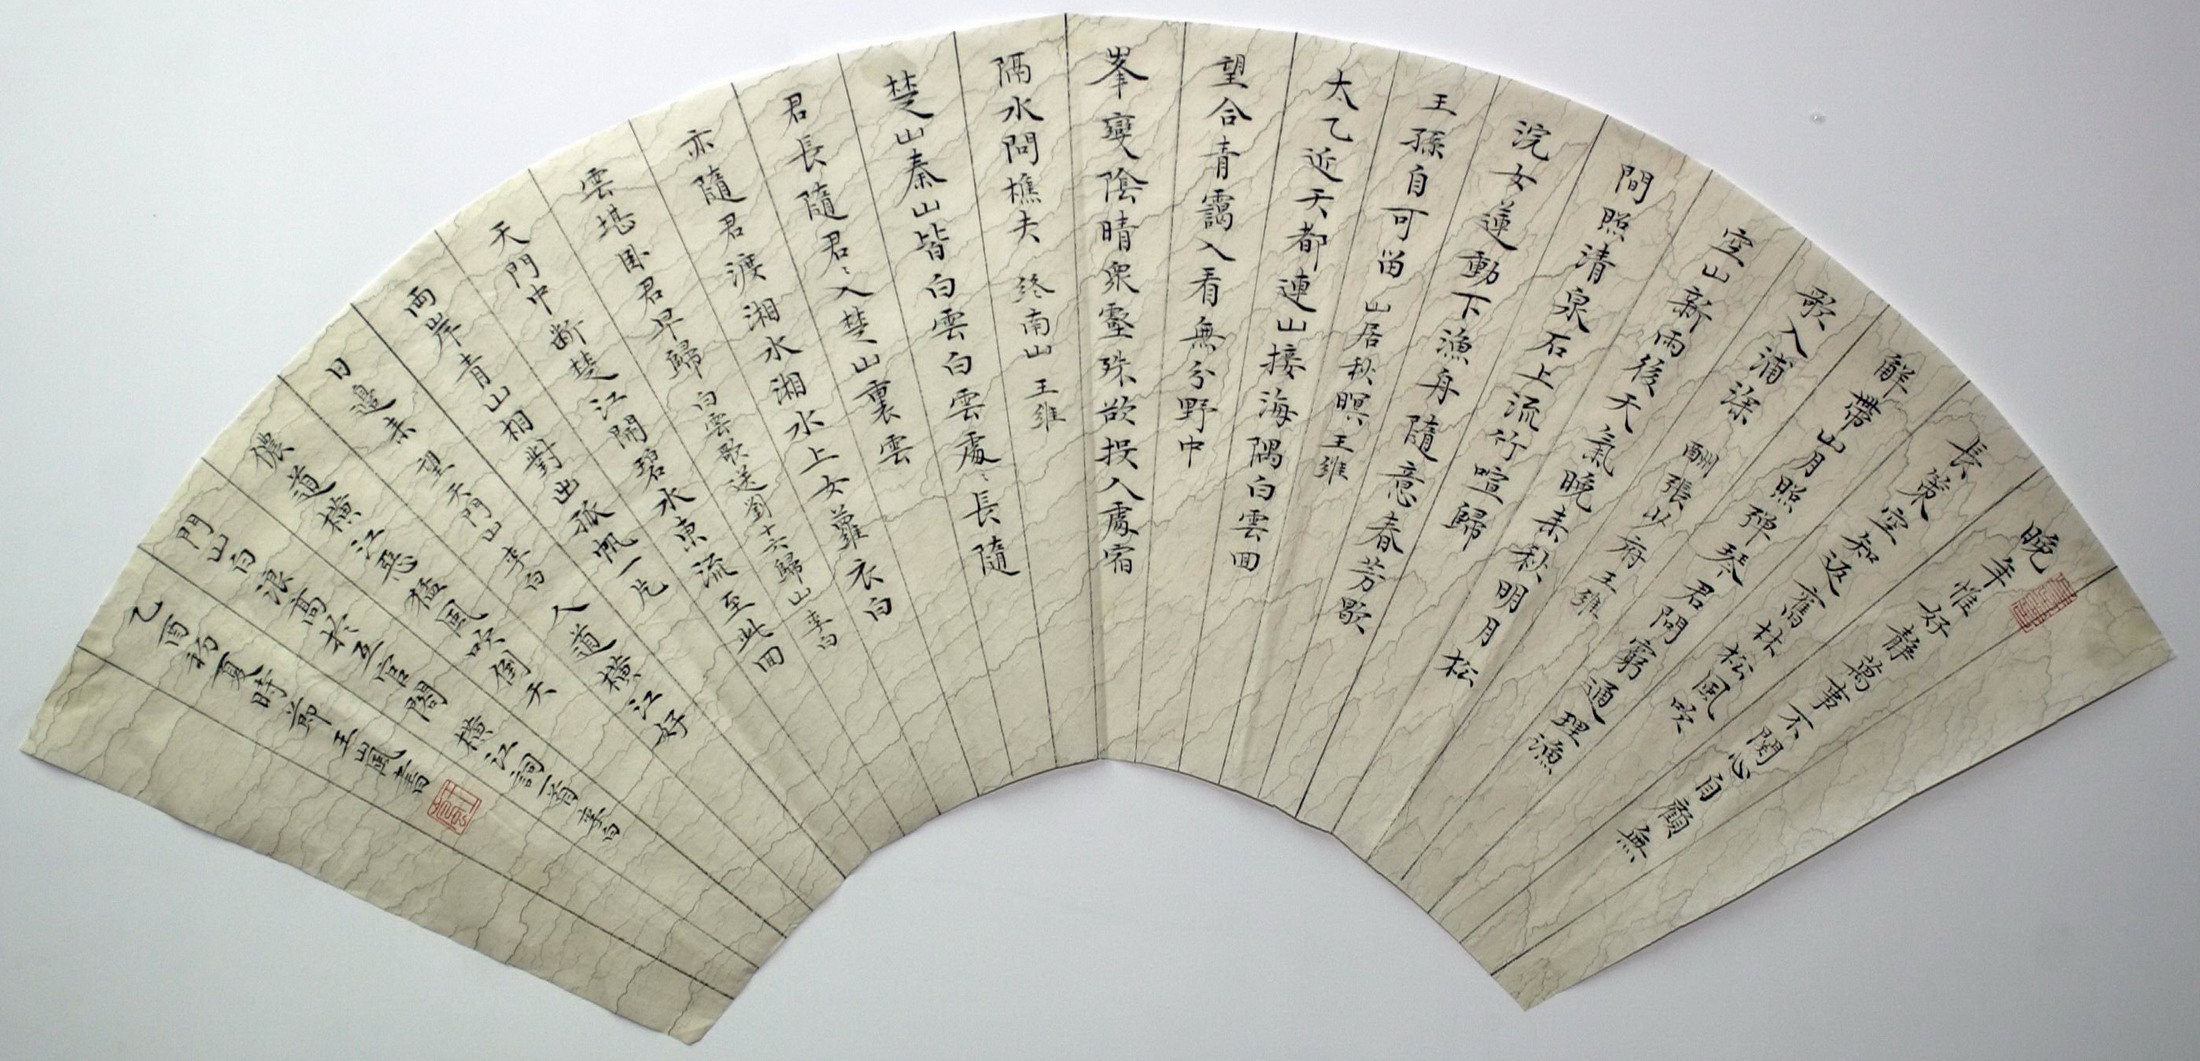 晚年惟好静萬事不関心自顧無
長策空知返舊林松風吹
解帶山月照弾琴君問窮通理漁
歌入浦深 酬張少府 王維
空山新雨後天氣晚来秋明月松
間照清泉石上流竹喧歸
浣女蓮動下漁舟隨意春芳歇
王孫自可留 山居秋暝 王維
太乙近天都連山接海隅白雲回
望合青靄入看無分野中
峯變陰晴衆壑殊欲投人處宿
隔水問樵夫 終南山 王維
楚山秦山皆白雲白雲處々長隨
君長隨君々入楚山裏雲
亦隨君渡湘水湘水上女蘿衣白
雲堪臥君早歸 白雲歌送劉十六歸山 李白
天門中断楚江開碧水東流至此回
兩岸青山相對出孤帆一片
日邊来 望天門山 李白 人道橫江好
儂道橫江惡猛風吹倒天
門山白浪高於瓦官閣 橫江詞一首 李白
乙酉初夏時節王嵐書